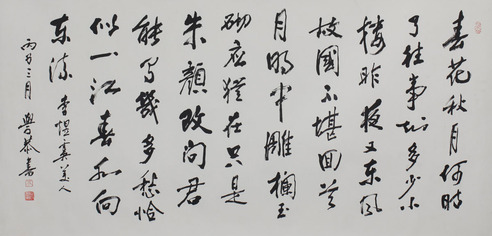 春花秋月何時
了往事知多少小
樓昨夜又東風
故國不堪回首
月明中雕欄玉
砌應猶在只是
朱顏改問君
能有幾多愁恰
似一江春水向
東流 李煜虞美人
三月 書